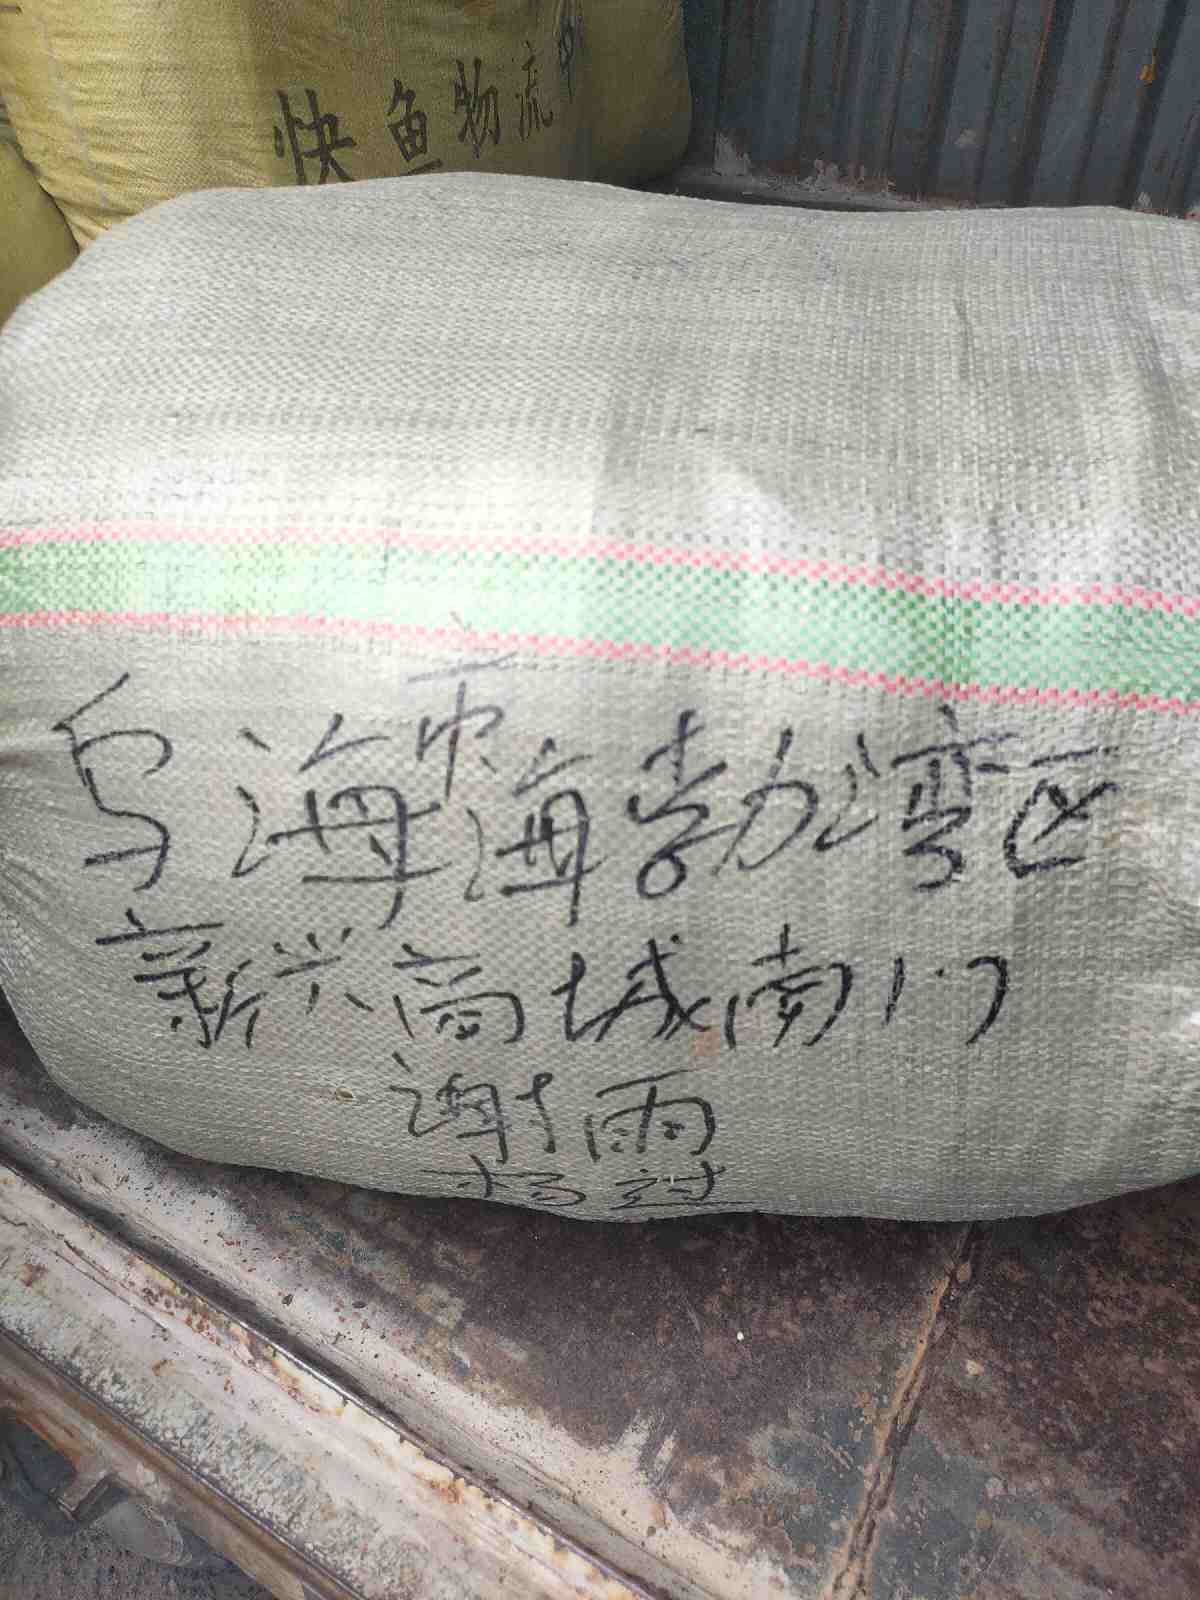 快鱼物流
乌海市海勃湾区
新兴商城南门
谢雨